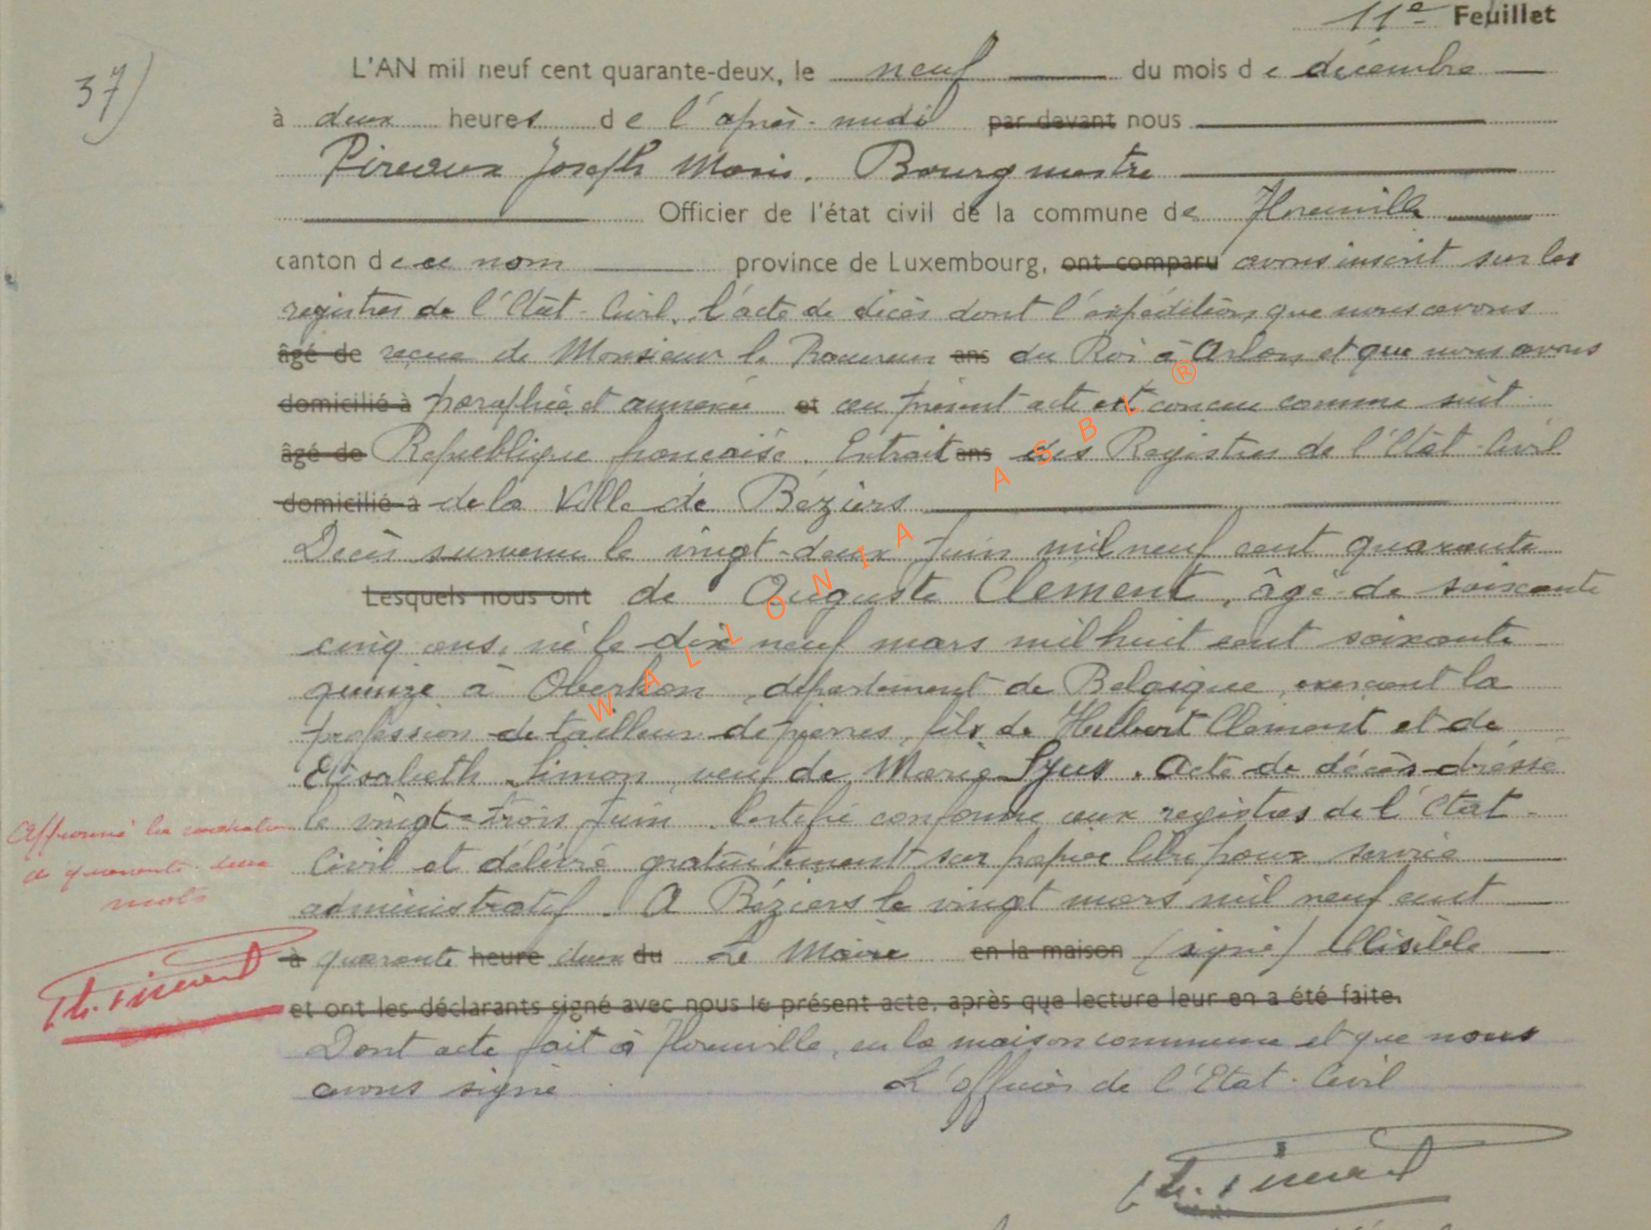 11e Feuillet
37)
L'AN mil neuf cent quarante-deux, le neuf du mois de décembre
à deux heures de l'après-midi par devant nous
Joseph Bourgmestre
Officier de l'état civil de la commune de Florenville
canton de ce nom province de Luxembourg, ont comparu avons inscrit sur les
registres de l'Etat-Civil, l'acte de décès dont l'expédition que nous avons
âgé de reçue de Monsieur le Procureur ans du Roi à Arlon et que nous avons
domicilié à paraphée et annexée et au présent acte est conçu comme suit
âgé de République française. Extrait ans des Registres de l'Etat-Civil
domicilié à de la Ville de Béziers
Décès survenu le vingt-deux Juin mil neuf cent quarante
Lesquels nous ont de Auguste Clement, âgé de soixante
cinq ans, né le dix neuf mars mil huit cent soixante
quinze à département de Belgique, exerçant la
profession de tailleur de pierres, fils de Hubert Clement et de
Elisabeth Simon, veuf de Marie Syus. Acte de décès dréssé
le vingt-trois Juin. Certifié conforme aux registres de l'Etat-
Civil et délivré gratuitement sur papier libre pour service
administratif. A Béziers le vingt mars mil neuf cent
à quarante heure deux du Le Maire en la maison (signé) Illisible
et ont les déclarants signé avec nous le présent acte, après que lecture leur en a été faite.
Dont acte fait à Florenville, en la maison commune et que nous
avons signé L'officier de l'Etat-Civil
à quarante-deux
mots
WALLONIA ASBL ®